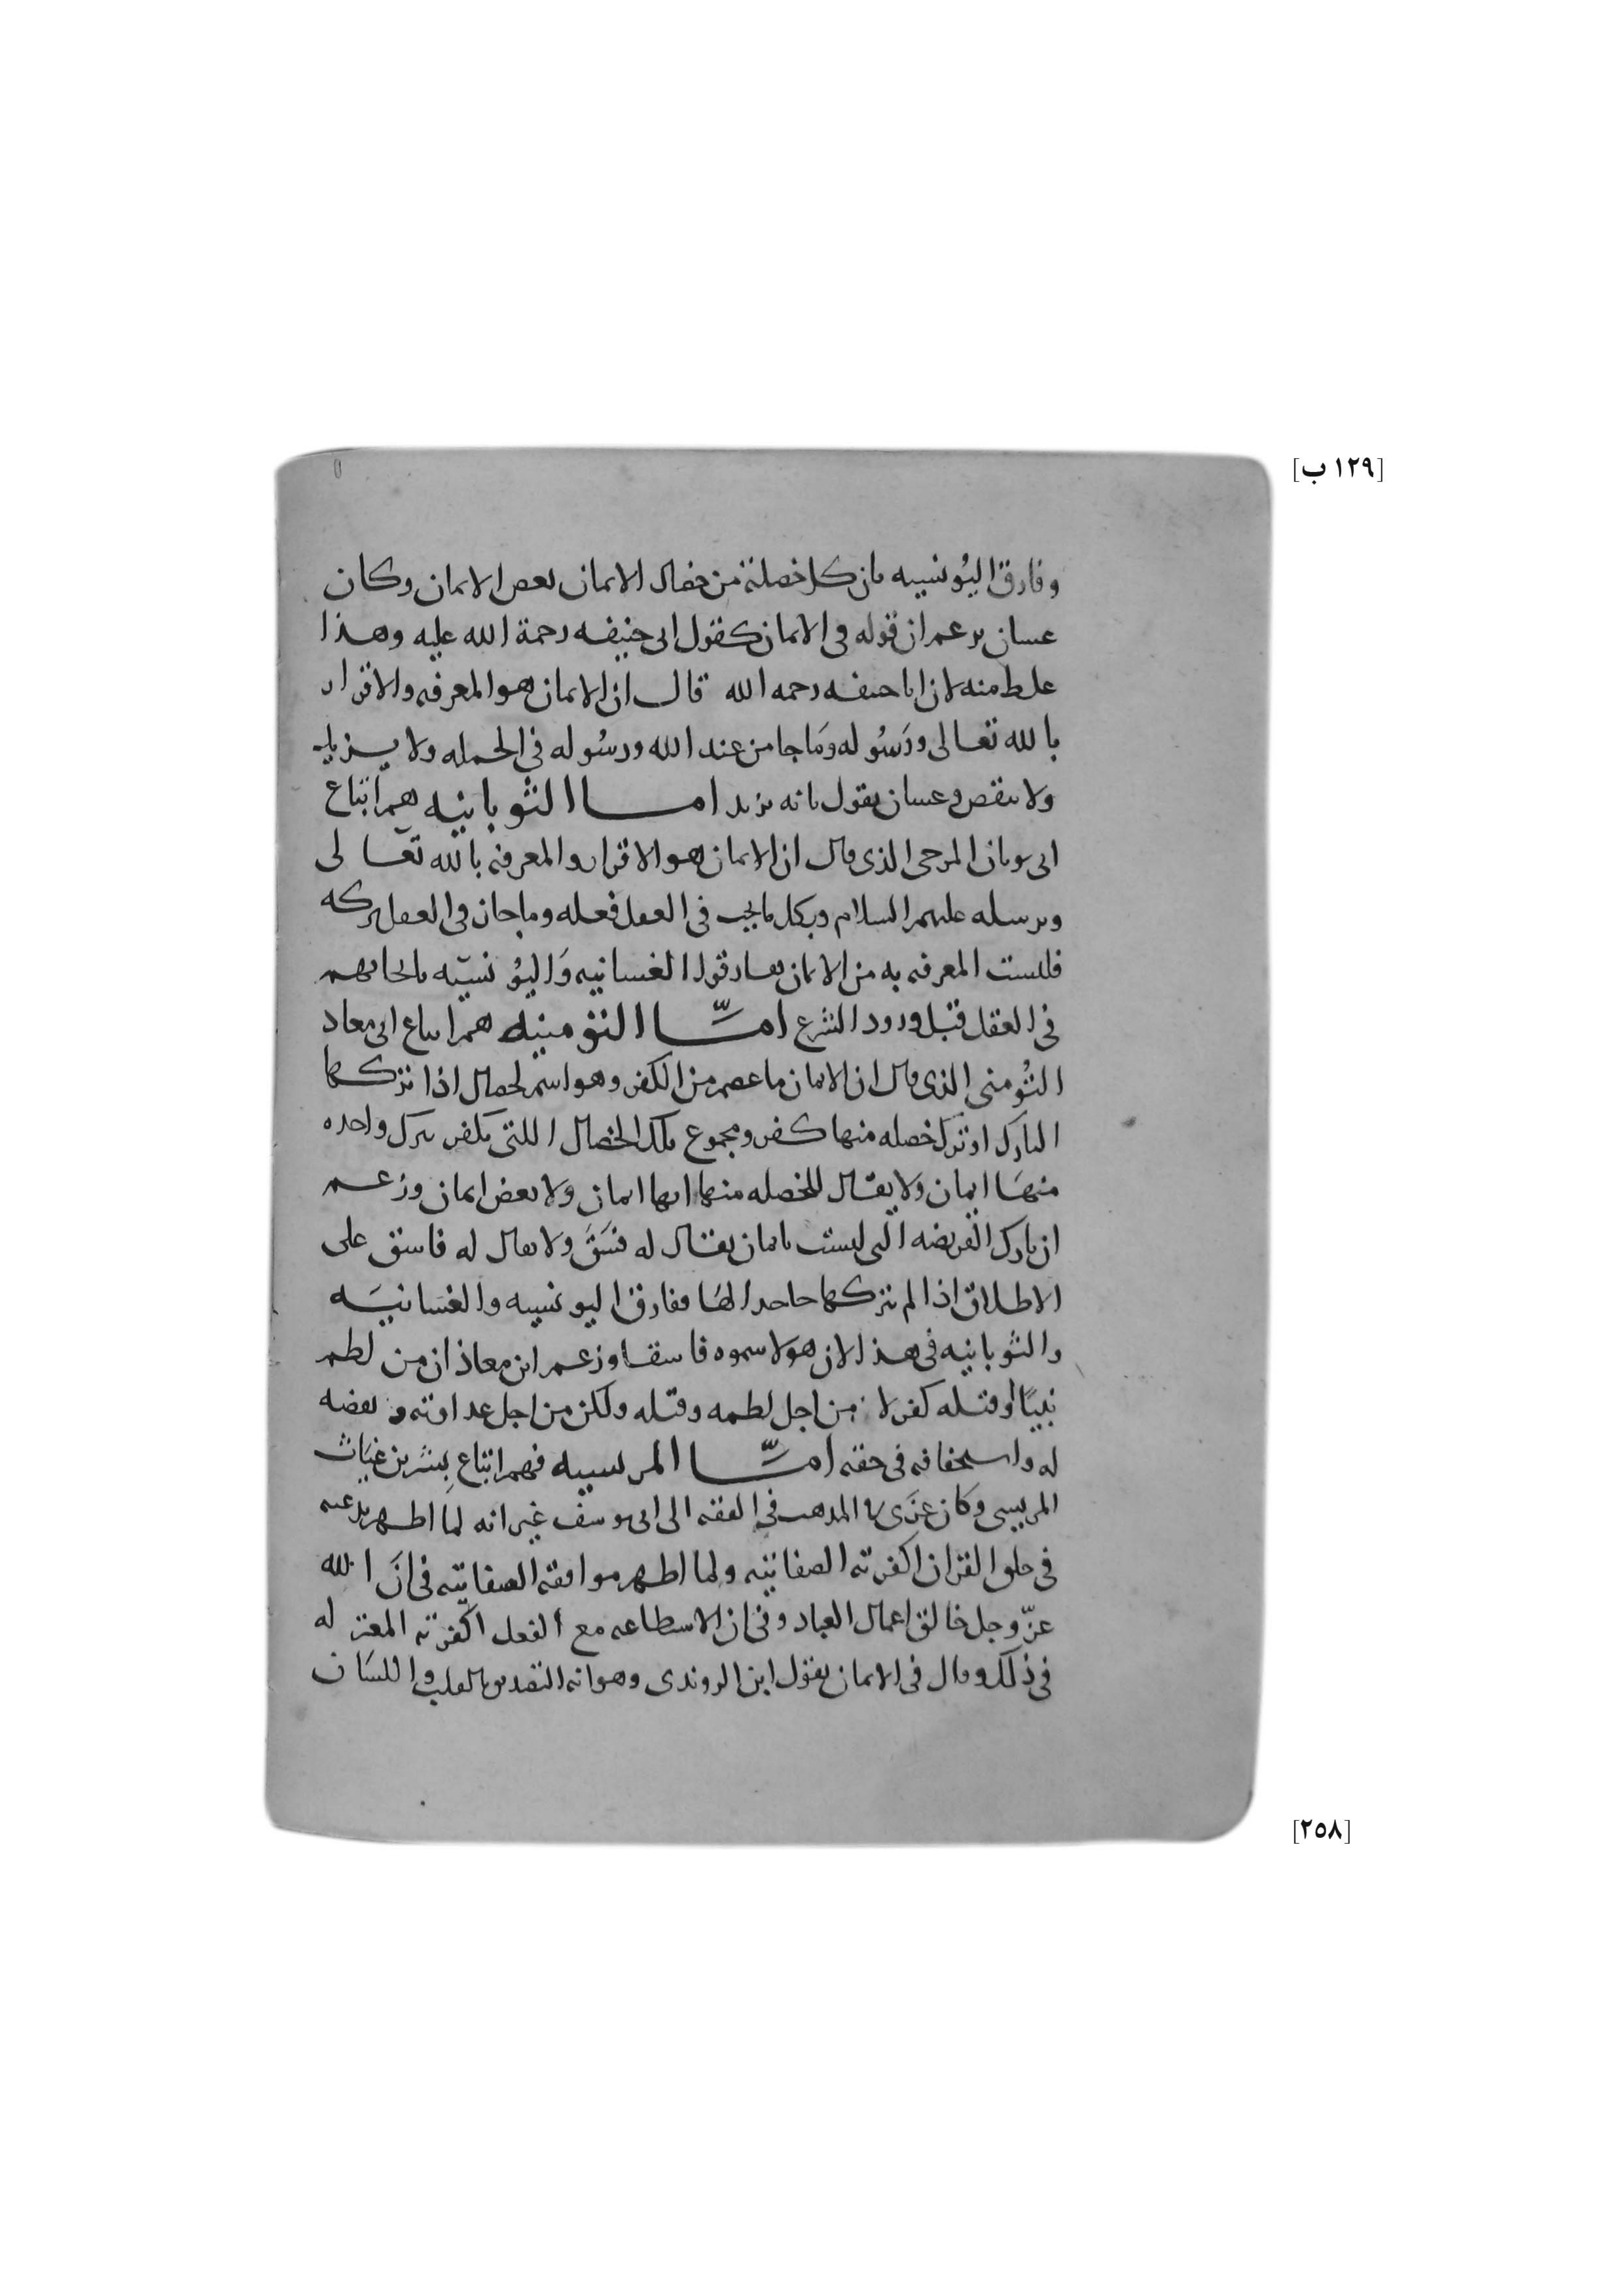 [١٢٩ ب]
وفارق اليُونسيه بان كل خصلة من خصال الايمان بعض الايمان وكان
غسان يزعم ان قوله في الايمان كقول ابى حنيفه رحمة الله عليه وهذا
غلط منه لان ابا حنيفه رحمه الله قال ان الايمان هو المعرفه والاقرار
بالله تعالى ورَسُوله ومَا جا من عند الله ورسُوله في الجمله ولا يزيد
ولا ينقص وغسان يقول بانه يزيد امــا الثوبانيه هم اتباع
ابى ثوبان المرجى الذى قال ان الايمان هو الاقرار والمعرفه بالله تعَالى
وبرسله عليهم السلام وبكل ما يجب في العقل فعله وما جاز في العقل تركه
فليست المعرفه به من الايمان ففارقوا الغسانيه وَاليُونسيّه بايجابهم
في العقل قبل ورود الشرع امّــا الثومنيه هم اتباع ابى معاذ
الثُومنى الذى قال ان الايمان ما عصم من الكفر وهو اسم لخصال اذا تركها
التارك او ترك خصله منها كفر ومجموع تلك الخصال اللتى يكفر بترك واحده
منهَا ايمان ولا يقال للخصله منها انها ايمان ولا بعض ايمان وزعم
ان تارك الفريضه التى ليست بايمان يقال له فسَقَ ولا يقال له فاسق على
الاطلاق اذا لم يتركها جاحدا لهَا ففارق اليونسيه والغسَانيَه
والثوبانيه في هذا لان هولا سموه فاسقا وزعم ابن معاذ ان من لطم
نبيًا او قتله كفر لا من اجل لطمه وقتله ولكن من اجل عداوته وبغضه
له واستخفافه في حقه امّــا المريسيه فهم اتباع بِشر بن غيَاث
المريسى وكان عَزَى المذهب في الفقه الى ابى يوسف غير انه لما اظهر بدعته
في خلق القران اكفرته الصفاتيه ولما اظهر موافقه الصفاتيّه في انَ الله
عزّ وجل خالق اعمال العباد وفي ان الاستطاعه مع الفعل اكفرته المعتزله
في ذلك وقال في الايمان بقول ابن الروندى وهو انه التصديق بالقلب واللسَان
[٢٥٨]